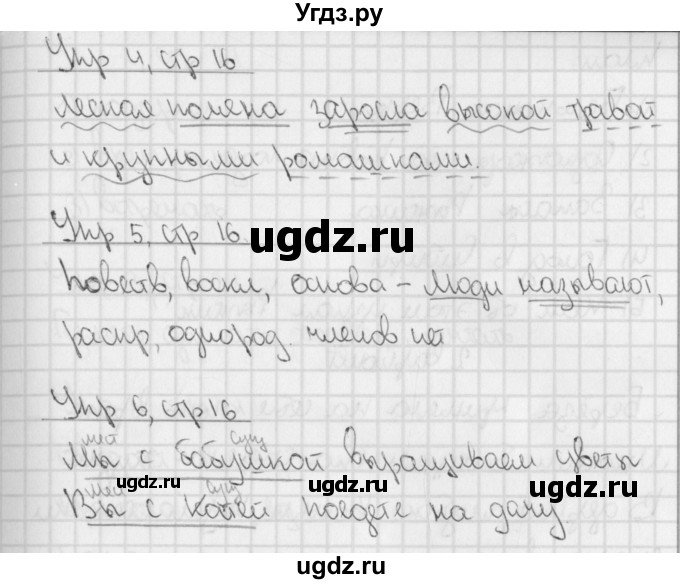 Угдз.ру
Упр 4, стр 16
Лесная поляна заросла высокой травой
и крупными ромашками.
Упр 5, стр 16.
ugdz.ru
Повеств, воскл, основа – люди называют,
распр, однород. членов нет
Упр 6, стр 16
мест сущ
Мы с бабушкой выращиваем цветы
ugdz.ru ugdz.ru
мест сущ
Вы с Катей поедете на дачу.
ugdz.ru ugdz.ru
ugdz.ru